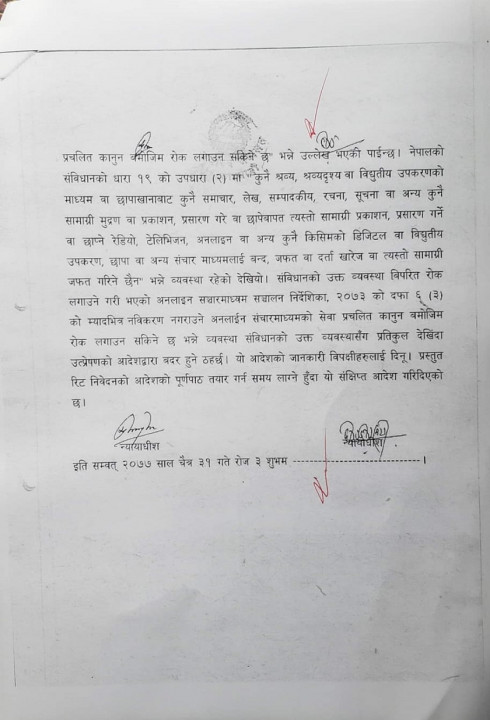 प्रचलित कानुन बमोजिम रोक लगाउन सकिने छ" भन्ने उल्लेख भएकी पाईन्छ। नेपालको
संविधानको धारा १९ को उपधारा (२) मा "कुनै श्रव्य, श्रव्यदृश्य वा विद्युतीय उपकरणको
माध्यम वा छापाखानाबाट कुनै समाचार, लेख, सम्पादकीय, रचना, सूचना वा अन्य कुनै
सामाग्री मुद्रण वा प्रकाशन, प्रसारण गरे वा छापेवापत त्यस्तो सामाग्री प्रकाशन, प्रसारण गर्ने
वा छाप्ने रेडियो, टेलिभिजन, अनलाइन वा अन्य कुनै किसिमको डिजिटल वा विद्युतीय
उपकरण, छापा वा अन्य संचार माध्यमलाई बन्द, जफत वा दर्ता खारेज वा त्यस्तो सामाग्री
जफत गरिने छैन" भन्ने व्यवस्था रहेको देखियो। संविधानको उक्त व्यवस्था विपरित रोक
लगाउने गरी भएको अनलाइन सञ्चारमाध्यम सञ्चालन निर्देशिका, २०७३ को दफा ६ (३)
को म्यादभित्र नविकरण नगराउने अनलाईन संचारमाध्यमको सेवा प्रचलित कानुन बमोजिम
रोक लगाउन सकिने छ भन्ने व्यवस्था संविधानको उक्त व्यवस्थासँग प्रतिकुल देखिंदा
उत्प्रेषणको आदेशद्वारा बदर हुने ठहर्छ। यो आदेशको जानकारी विपक्षीहरुलाई दिनू। प्रस्तुत
रिट निवेदनको आदेशको पूर्णपाठ तयार गर्न समय लाग्ने हुँदा यो संक्षिप्त आदेश गरिदिएको
छ।
न्यायाधीश
न्यायाधीश
इति सम्वत् २०७७ साल चैत्र ३१ गते रोज ३ शुभम ------------------------------।